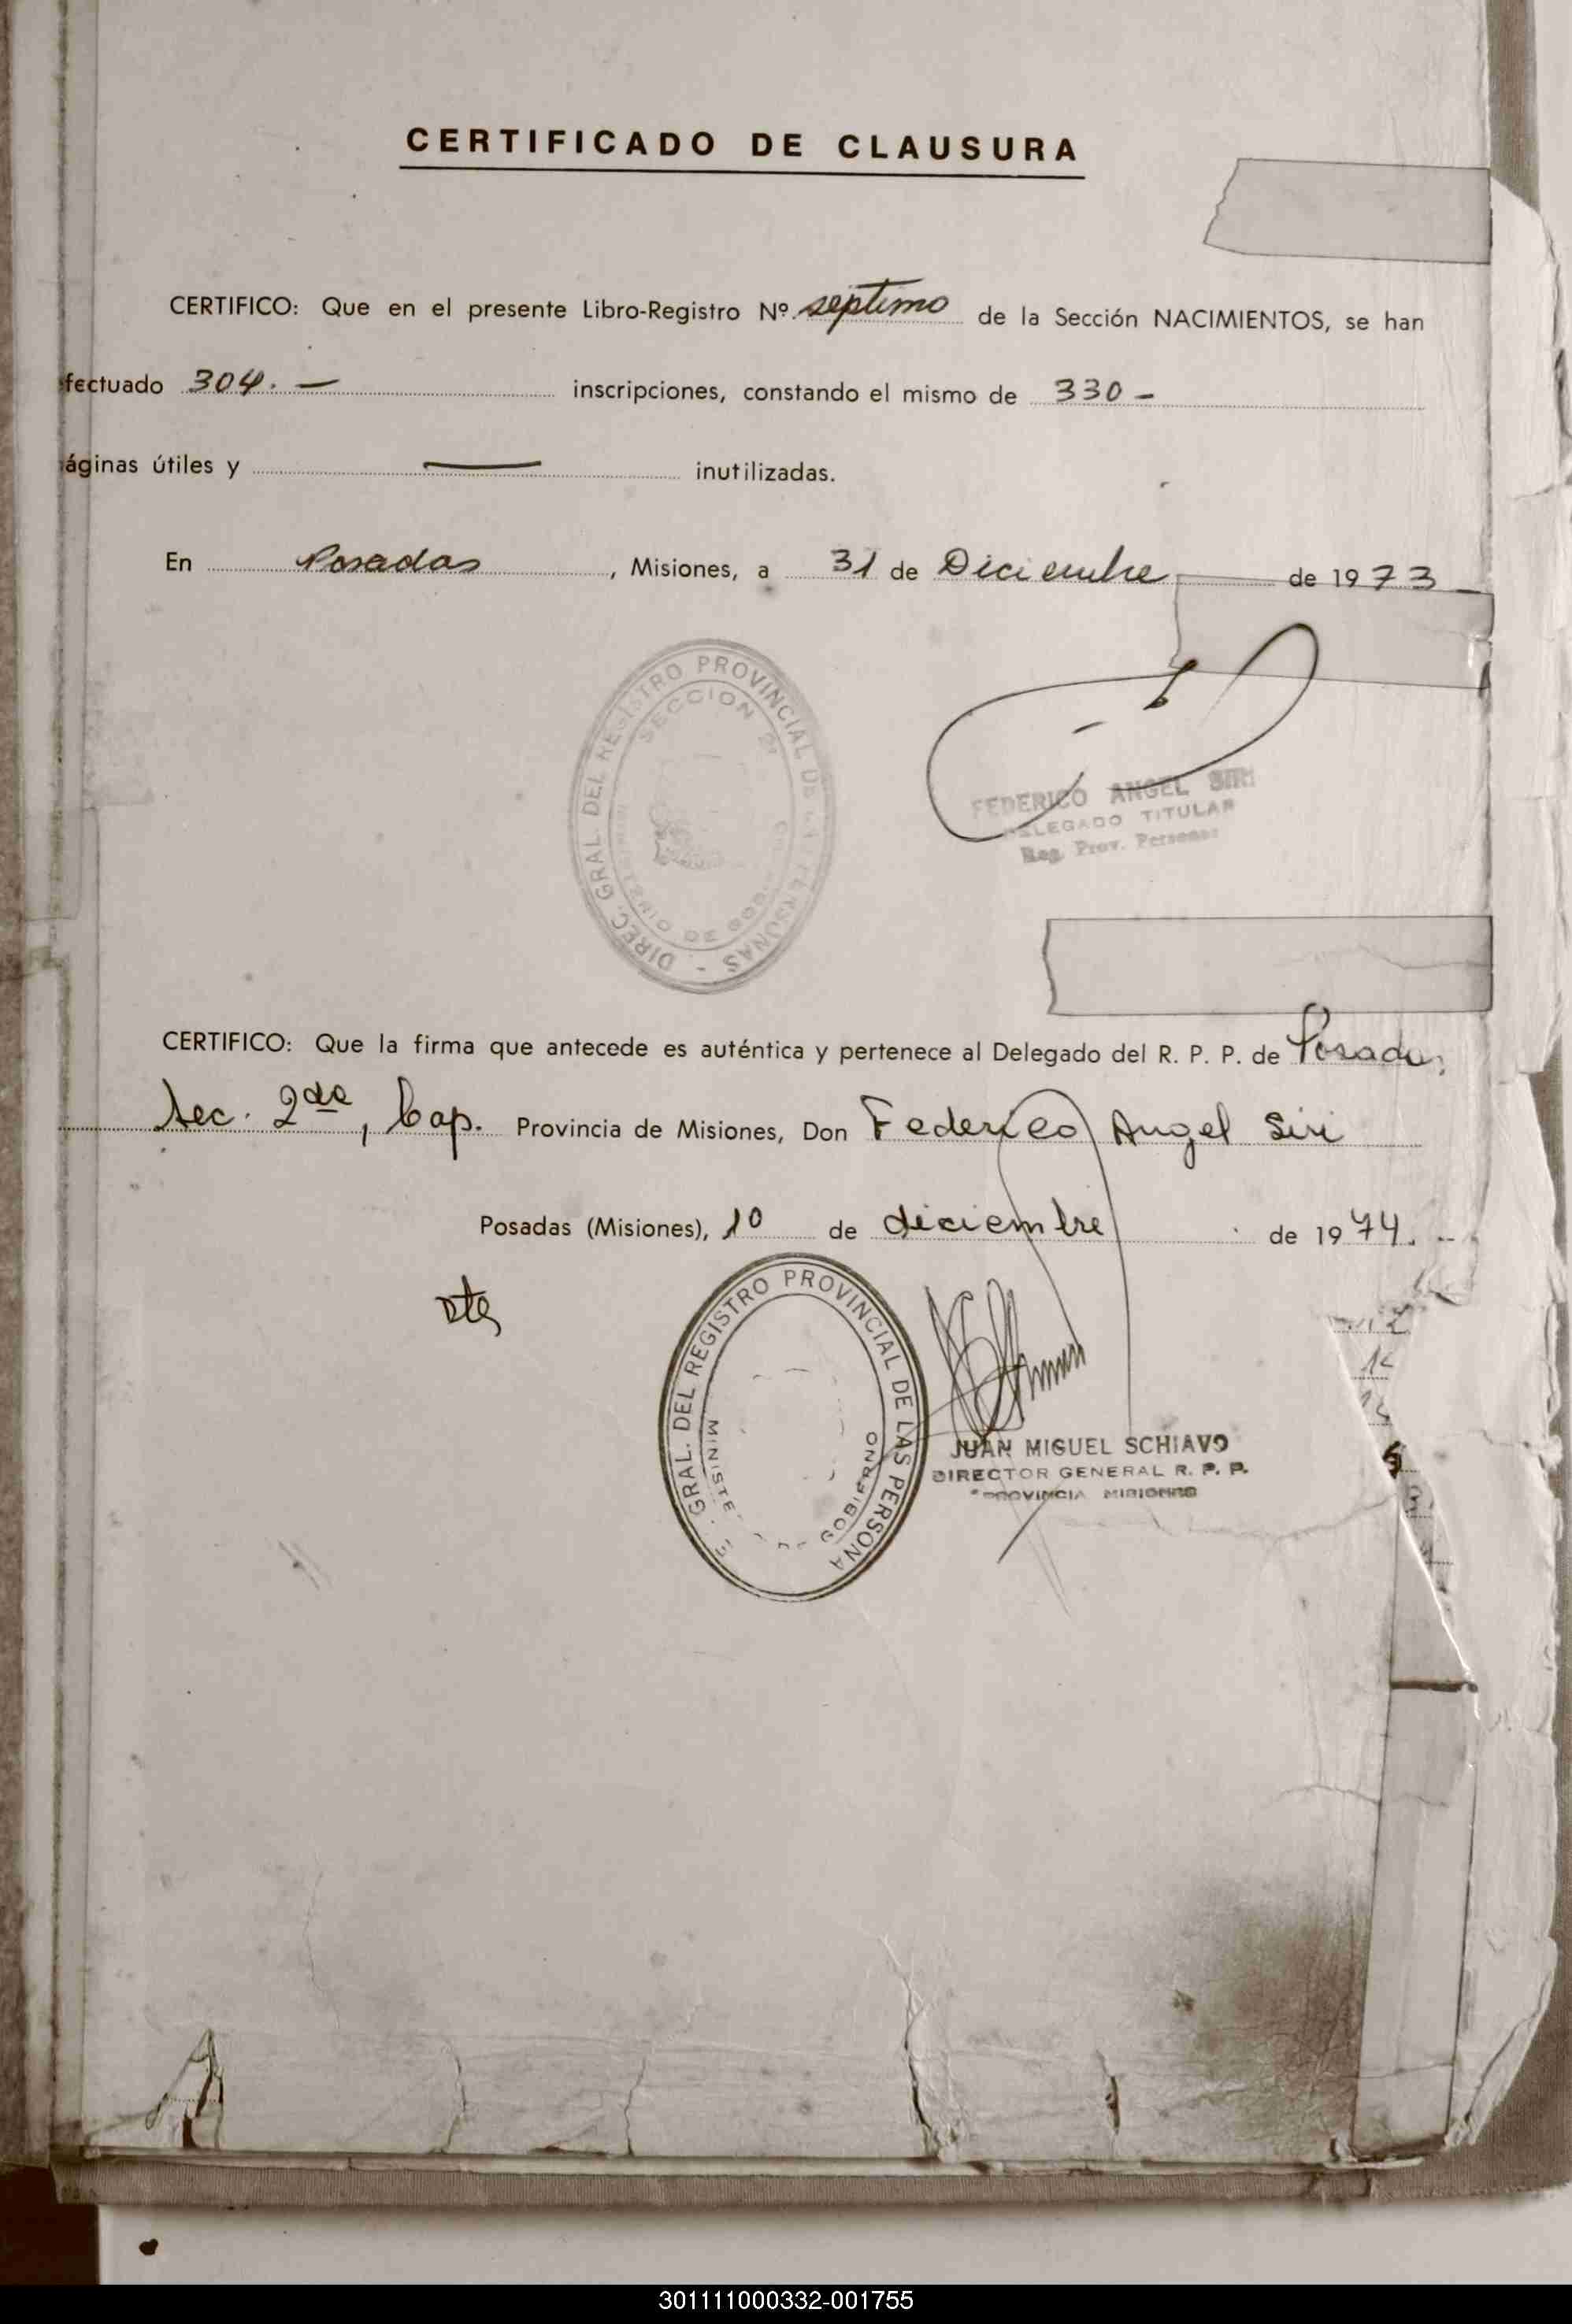 CERTIFICADO DE CLAUSURA
CERTIFICO: Que en el presente Libro-Registro Nº septimo de la Sección NACIMIENTOS, se han
fectuado 304. — inscripciones, constando el mismo de 330 -
áginas útiles y — inutilizadas.
En Posadas, Misiones, a 31 de Diciembre de 1973
DIREC. GRAL. DEL REGISTRO PROVINCIAL DE LAS PERSONAS -
SECCION 2ª
MINISTERIO DE GOBIERNO
FEDERICO ANGEL SIRI
DELEGADO TITULAR
Reg. Prov. Personas
CERTIFICO: Que la firma que antecede es auténtica y pertenece al Delegado del R. P. P. de Posadas,
Sec. 2da, Cap. Provincia de Misiones, Don Federico Angel Siri
Posadas (Misiones), 10 de diciembre de 1974.
GRAL. DEL REGISTRO PROVINCIAL DE LAS PERSONA
MINISTE GOBIERNO
JUAN MIGUEL SCHIAVO
DIRECTOR GENERAL R. P. P.
PROVINCIA MISIONES
301111000332-001755